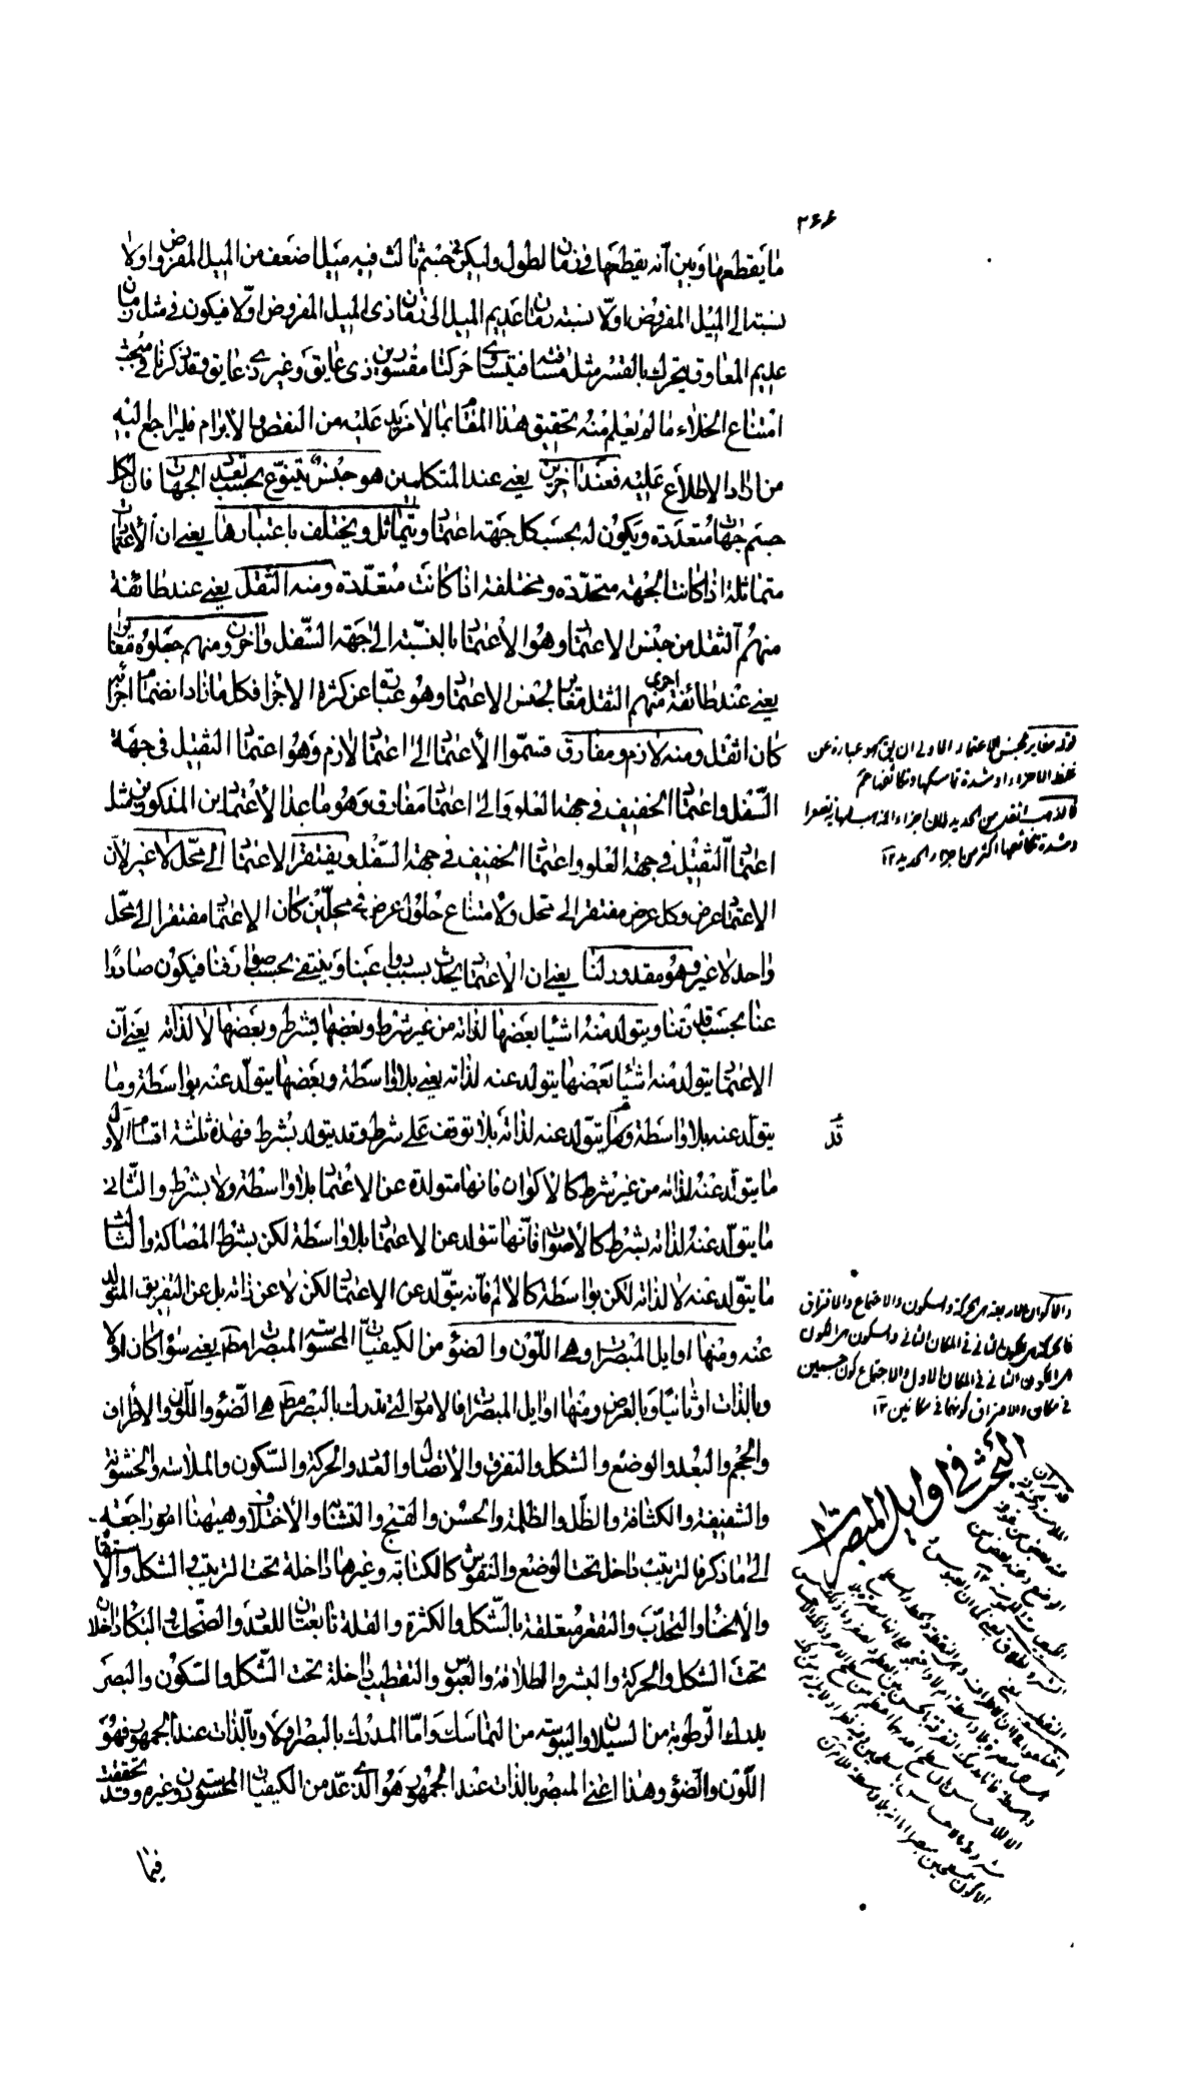 ۲۶۶
ما يقطعها وبين انه يقطعها فى زمان الطول وليكن جسم ثالث فيه ميل اضعف من الميل المفروض اولا
نسبته الى الميل المفروض اولا نسبة زمان عديم الميل الى زمان ذى الميل المفروض اولا فيكون فى مثل زمان
عديم المعاوق يتحرك بالقسر مثل مسافته فيتساوى حركتا مقسورين ذى عايق وغير ذى عايق وقد ذكرنا فى مبحث
امتناع الخلاء ما لم يعلم منه تحقيق هذا المقام بما لا مزيد عليه من النقض والابرام فليراجع اليه
من اراد الاطلاع عليه فعند اخرين يعنى عند المتكلمين هو جنس يتنوع بحسب تعدد الجهات فان لكل
جسم جهات متعددة ويكون له بحسب كل جهة اعتماد ويتماثل ويختلف باعتبارها يعنى ان الاعتمادات
متماثلة اذا كانت الجهة متحدة ومختلفة اذا كانت متعددة ومنه الثقل يعنى عند طائفة
منهم الثقل من جنس الاعتماد وهو الاعتماد بالنسبة الى جهة السفل واخرون منهم جعلوه مغايرا
يعنى عند طائفة اخرى منهم الثقل مغاير لجنس الاعتماد وهو عبارة عن كثرة الاجزاء فكل ما زاد انضمام اجزائه
كان اثقل ومنه لازم ومفارق قسموا الاعتماد الى اعتماد لازم وهو اعتماد الثقيل فى جهة
السفل واعتماد الخفيف فى جهة العلو والى اعتماد مفارق وهو ما عدا الاعتمادين المذكورين مثل
اعتماد الثقيل فى جهة العلو واعتماد الخفيف فى جهة السفل ويفتقر الاعتماد الى محل لا غير لان
الاعتماد عرض وكل عرض مفتقر الى محل ولامتناع حلول عرض فى محلين كان الاعتماد مفتقرا الى محل
واحد لا غير وهو مقدور لنا يعنى ان الاعتماد يحدث بسبب دواعينا وينتفى بحسب صوارفنا فيكون صادرا
عنا بحسب قدرتنا ويتولد منه اشياء بعضها لذاته من غير شرط وبعضها بشرط وبعضها لا لذاته يعنى ان
الاعتماد يتولد منه اشياء بعضها يتولد عنه لذاته يعنى بلا واسطة وبعضها يتولد عنه بواسطة وما
يتولد عنه بلا واسطة وما يتولد عنه لذاته بلا توقف على شرط وقد يتولد بشرط فهذه ثلثة اقسام الاول
قد
ما يتولد عنه لذاته من غير شرط كالاكوان فانها متولدة عن الاعتماد بلا واسطة ولا بشرط والثانى
ما يتولد عنه لذاته بشرط كالاصوات فانها تتولد عن الاعتماد بلا واسطة لكن بشرط المصاكة والثالث
ما يتولد عنه لا لذاته لكن بواسطة كالالم فانه يتولد عن الاعتماد لكن لا عن ذاته بل عن التفريق المتولد
عنه ومنها اوايل المبصرات وهى اللون والضوء من الكيفيات المحسوسة المبصرات مطلقا يعنى سواء كان اولا
وبالذات او ثانيا وبالعرض ومنها اوايل المبصرات فالامور التى تدرك بالبصر مطلقا هى الضوء واللون والاطراف
والحجم والبعد والوضع والشكل والتفرق والاتصال والعدد والحركة والسكون والملاسة والخشونة
والشفيف والكثافة والظل والظلمة والحسن والقبح والتشابه والاختلاف وههنا امور راجعة
الى ما ذكر فالترتيب داخل تحت الوضع والنقوش كالكتابة وغيرها داخلة تحت الترتيب والشكل والاستقامة
والانحناء والتحدب والتقعر متعلقة بالشكل والكثرة والقلة تابعتان للعدد والضحك والبكاء داخلان
تحت الشكل والحركة والبشر والطلاقة والعبوس والتقطيب داخلة تحت الشكل والسكون والبصر
يدرك الرطوبة من السيلان واليبوسة من التماسك واما المدرك بالبصر اولا وبالذات عند الجمهور فهو
اللون والضوء وهذا اعنى المبصر بالذات عند الجمهور هو الذى عد من الكيفيات المحسوسة دون غيره وقد تحققت
فيما
قوله مغاير لجنس الاعتماد الاولى ان يق هو عبارة عن
غلظ الاجزاء او شدة تماسكها وتكاثفها
كالذهب اثقل من الحديد لان اجزاء الذهب
وشدة تكاثفها اكثر من اجزاء الحديد ۱۲
والاكوان الاربعة هى الحركة والسكون والاجتماع والافتراق
فالحركة هى الكون الثانى فى المكان الثانى والسكون هو الكون
الثانى فى المكان الاول والاجتماع كون جسمين
فى مكان والافتراق كونهما فى مكانين ۱۲
البحث فى اوايل المبصرات